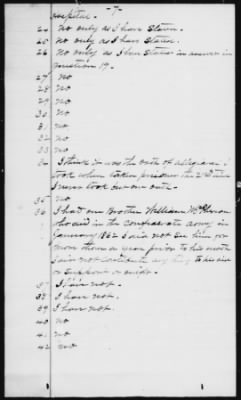 - 7 -
hospital.
24 No only as I have stated.
25 No only as I have stated.
26 No only as I have stated in answer in
question 19.
27 No
28 no
29 no
30 no
31 no
32 no
33 no
34 I think it was the oath of allegiance I
took when taken prisoner the 2d time
I never took but one oath.
35 no
36 I had one Brother William
who died in the confederate army in
January 1862 I did not see him for
more than a year prior to his death
I did not contribute any thing to his aid
or support or outfit.
37 I have not.
38 I have not.
39 I have not.
40 no
41 no
42 no